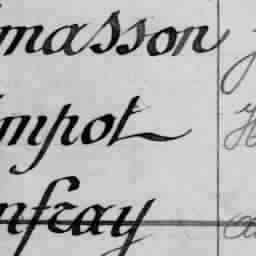 masson
mpot
nfray